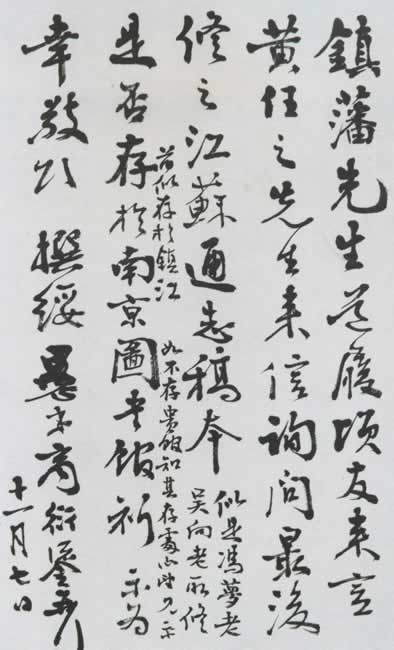 鎮藩先生道履頃友来言
黄任之先生来信詢問最後
修之江蘇通志稿本
似是馮夢老
吳向老所修
似存於鎮江
是否存於南京圖書館祈 示為
如不存貴館知其存處亦望見示
幸敬頌 撰綏 弟商衍鎏
十一月七日